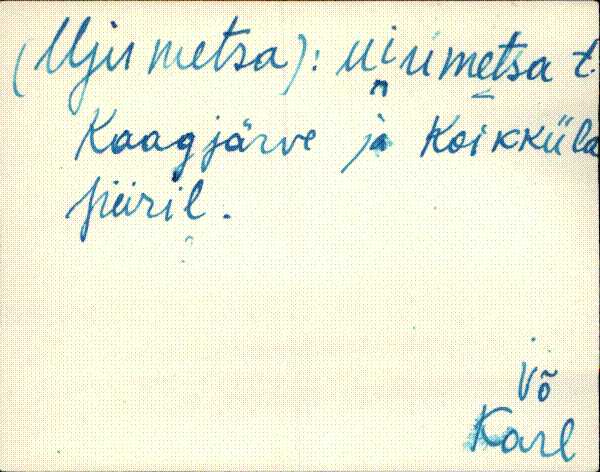 (Ujumetsa): uiumetsa t.
n
Kaagjärve ja Koikküla
piiril.
Võ
Karl